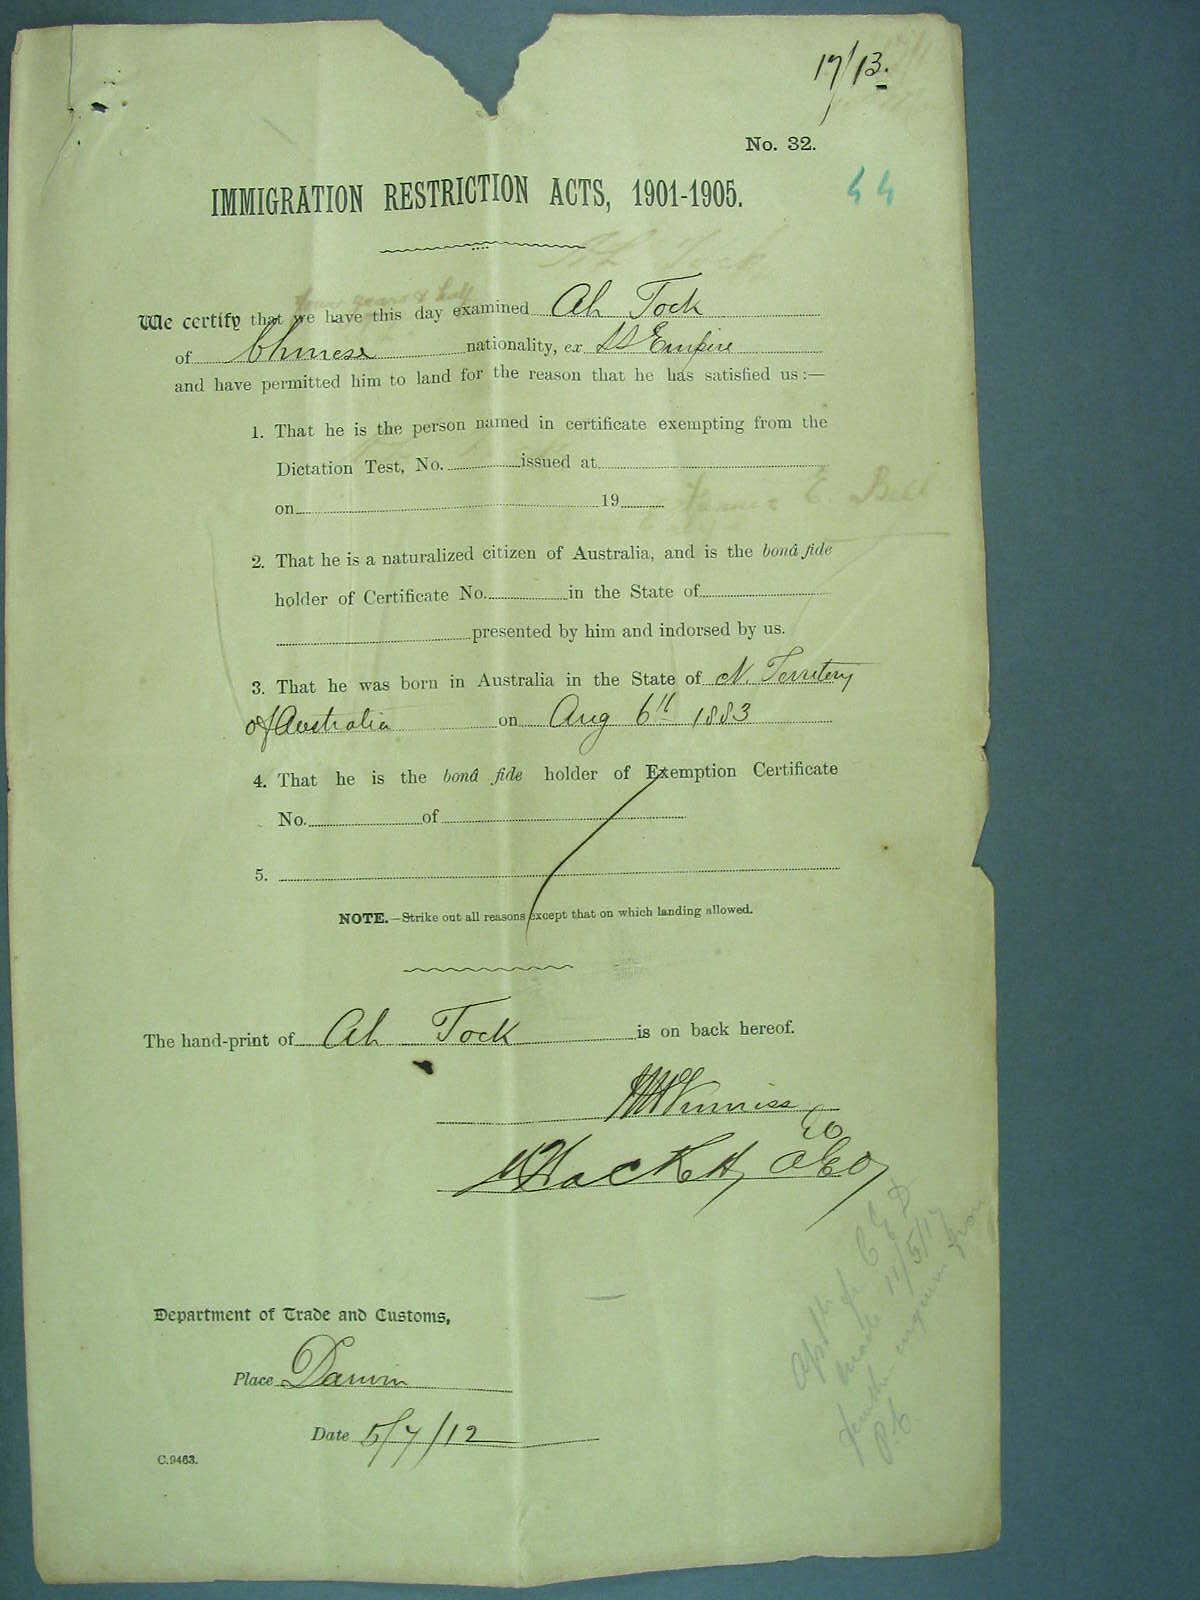 17/13.
No. 32.
44
IMMIGRATION RESTRICTION ACTS, 1901-1905.
Ah Tock
four years & half
We certify that we have this day examined Ah Tock
of Chinese nationality, ex SS Empire
and have permitted him to land for the reason that he has satisfied us :—
1. That he is the person named in certificate exempting from the
Dictation Test, No. issued at
on 19
E. Bell
2. That he is a naturalized citizen of Australia, and is the bonâ fide
holder of Certificate No. in the State of
presented by him and indorsed by us.
3. That he was born in Australia in the State of N. Territory
of Australia on Aug 6th 1883
4. That he is the bonâ fide holder of Exemption Certificate
No. of
5.
NOTE.—Strike out all reasons except that on which landing allowed.
The hand-print of Ah Tock is on back hereof.
Department of Trade and Customs,
Place Darwin
Date 5/7/12
C.9463.